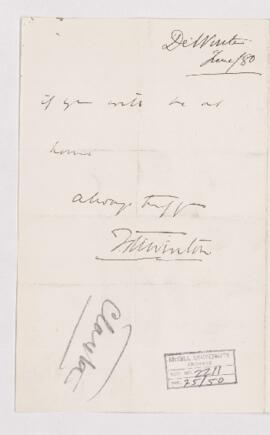 De Winton
June/80
if you will be at
home
always truly
F de Winton
Clarke
McGILL UNIVERSITY
ARCHIVES
ACC. NO. 2211
REF. 25/50